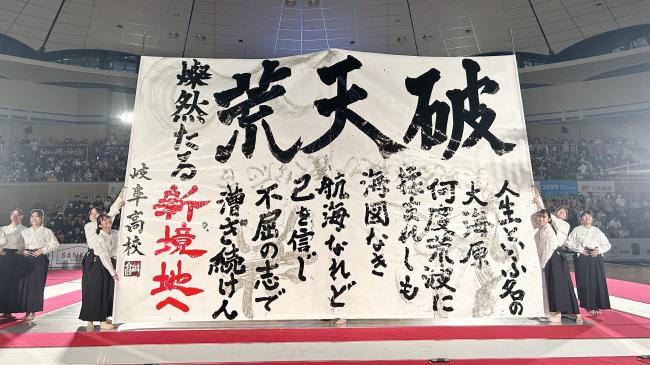 破天荒
人生といふ名の
大海原
何度荒波に
揉まれしも
海図なき
航海なれど
己を信じ
不屈の志で
漕ぎ続けん
燦然たる
新境地へ
岐阜高校